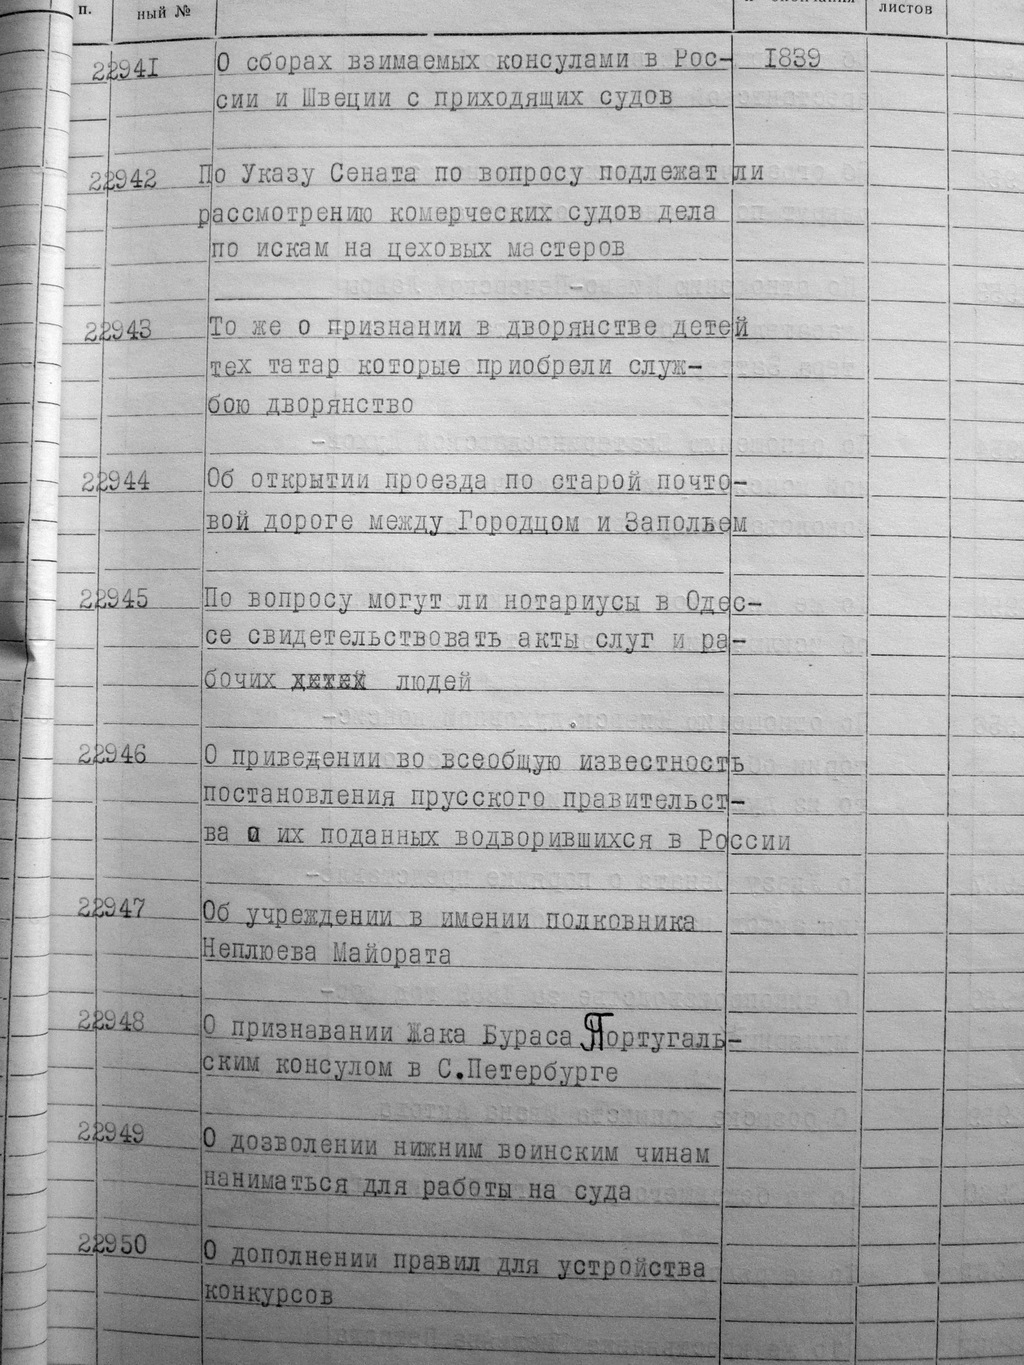 п. ный № листов
22941 О сборах взимаемых консулами в Рос- 1839
сии и Швеции с приходящих судов
22942 По Указу Сената по вопросу подлежат ли
рассмотрению комерческих судов дела
по искам на цеховых мастеров
22943 То же о признании в дворянстве детей
тех татар которые приобрели служ-
бою дворянство
22944 Об открытии проезда по старой почто-
вой дороге между Городцом и Запольем
22945 По вопросу могут ли нотариусы в Одес-
се свидетельствовать акты слуг и ра-
бочих детей людей
22946 О приведении во всеобщую известность
постановления прусского правительст-
ва о их поданных водворившихся в России
22947 Об учреждении в имении полковника
Неплюева Майората
22948 О признавании Жака Бураса Португаль-
ским консулом в С.Петербурге
22949 О дозволении нижним воинским чинам
наниматься для работы на суда
22950 О дополнении правил для устройства
конкурсов